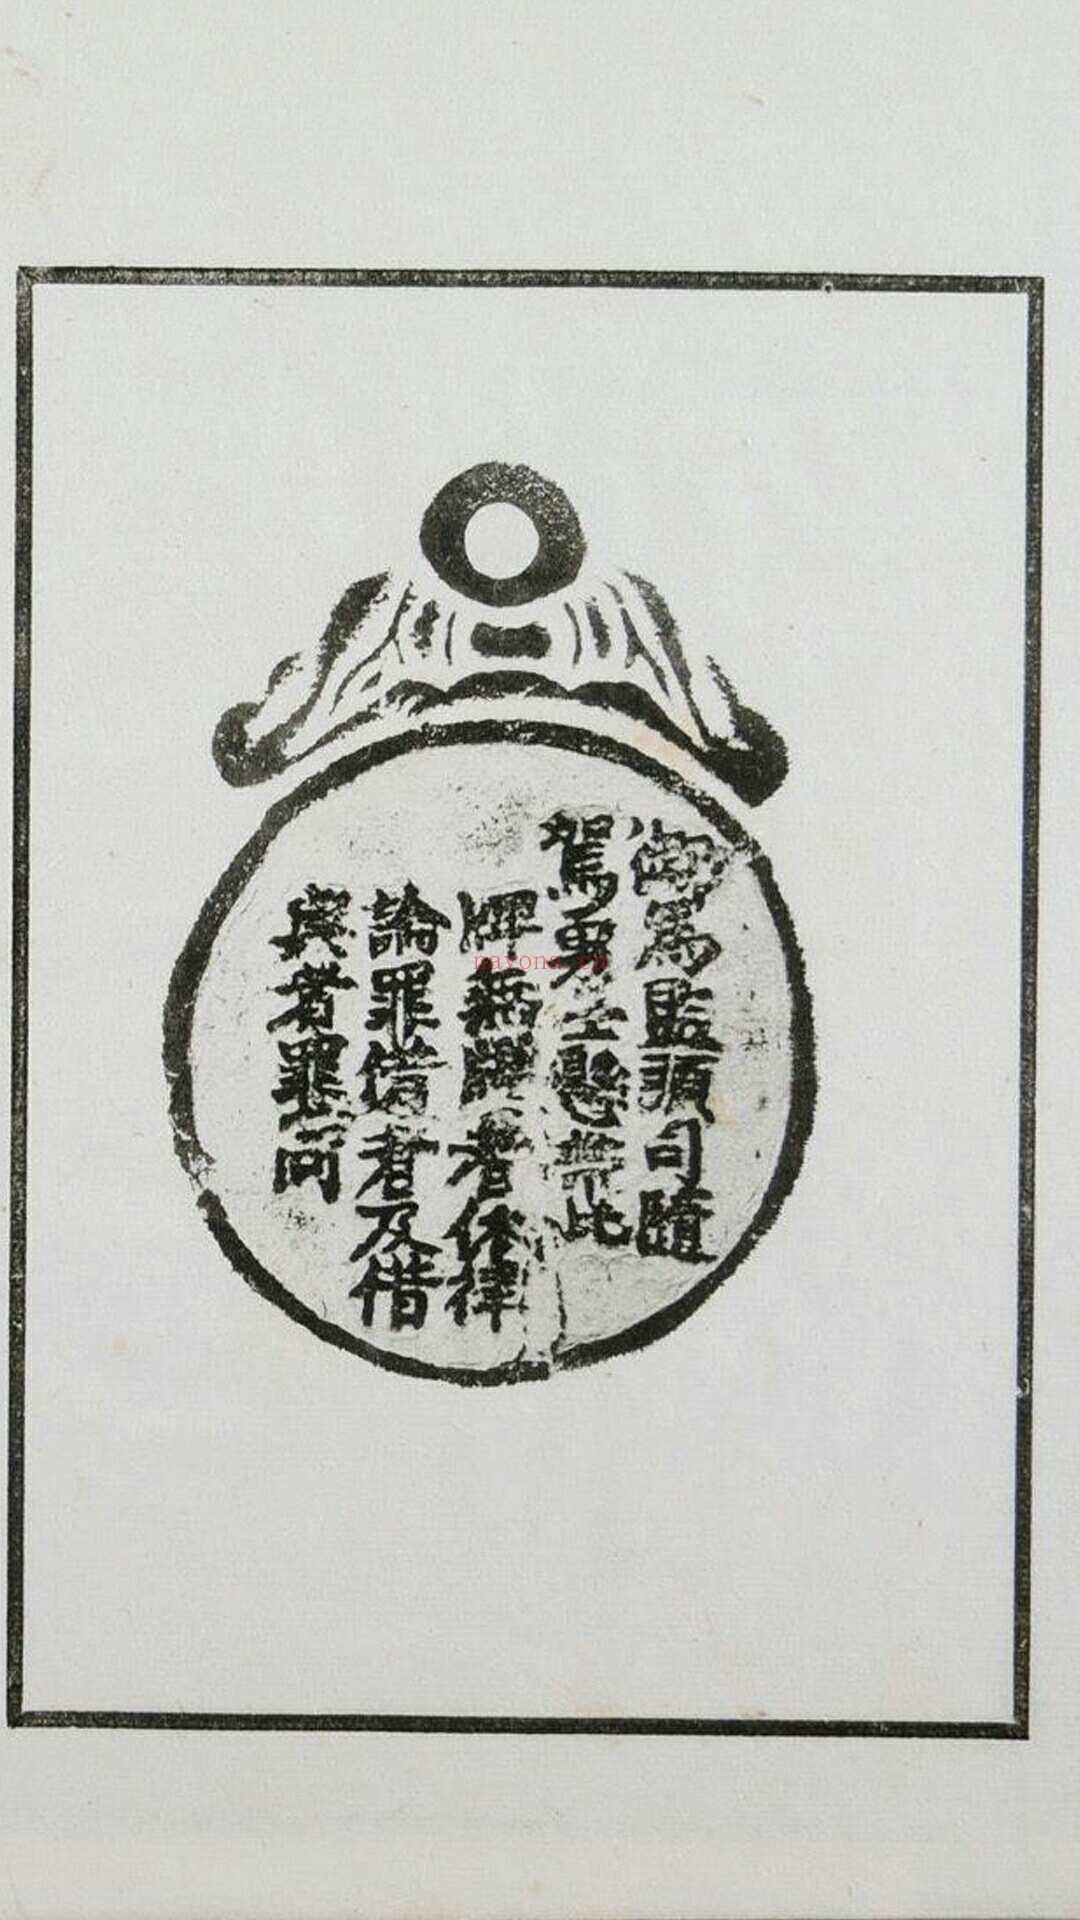 御馬監頭司隨
駕勇士懸帶此
牌無牌者依律
論罪借者及借
與者罪同
nayona.cn